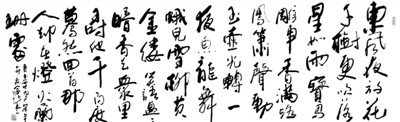 東風夜放花
千樹更吹落
星如雨寶馬
雕車香滿路
鳳簫聲動
玉壺光轉一
夜魚龍舞
蛾兒雪柳黃
金縷笑語盈盈
暗香去眾里
尋他千百度
驀然回首那
人卻在燈火闌
珊處